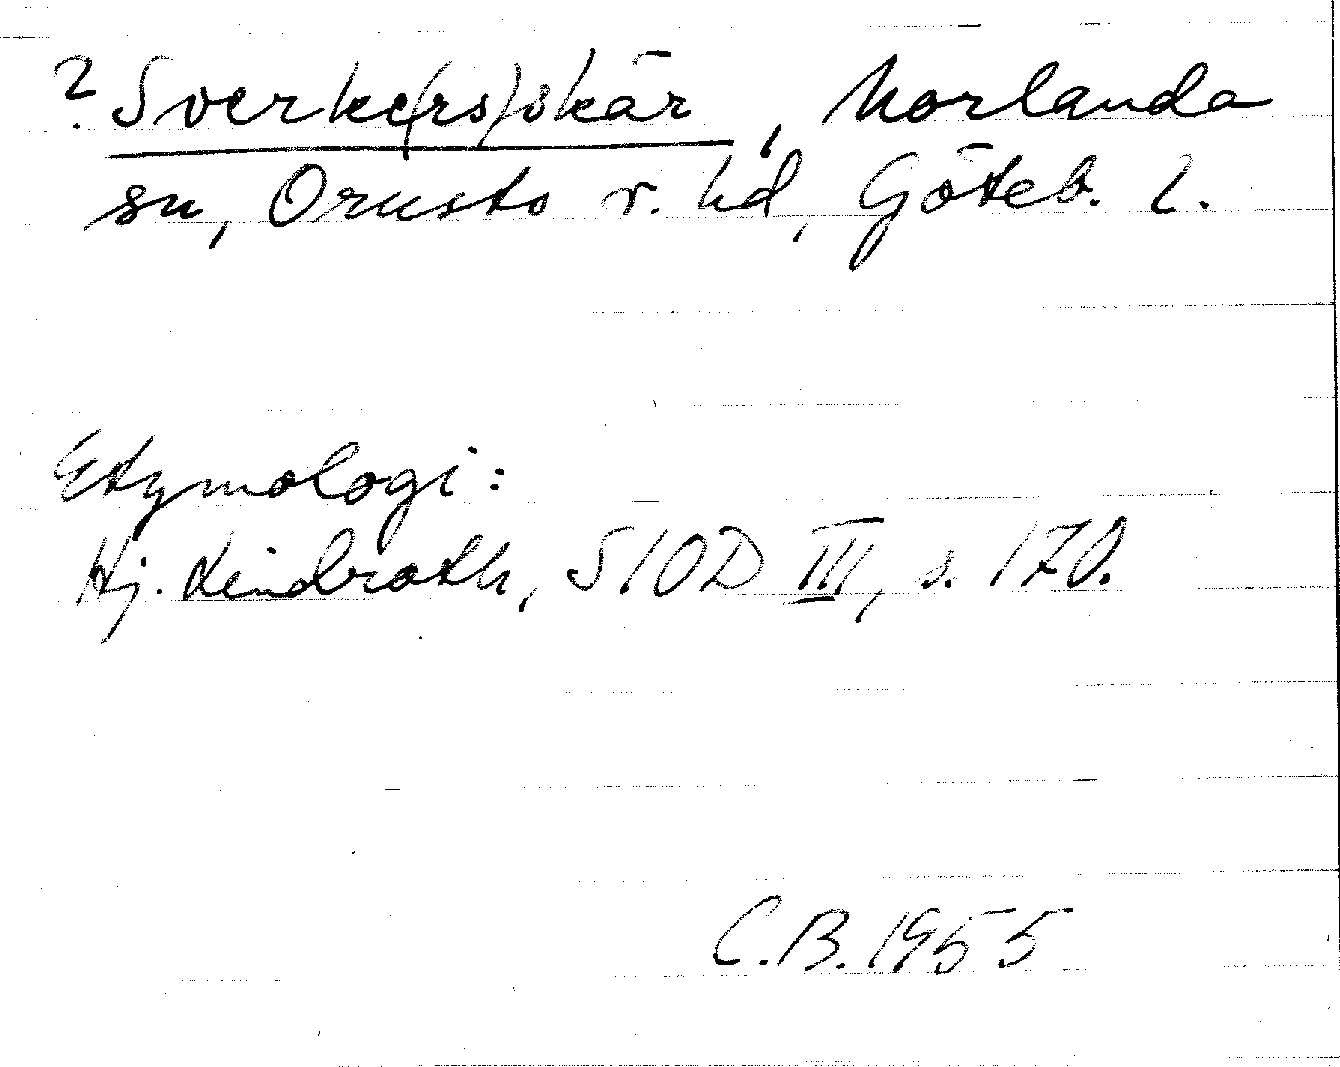 ? Sverke(rs)skär, Morlanda
sn, Orusts v. hd, Göteb. l.
Etymologi:
Hj. Lindroth, SIOD III, s. 170.
C.B. 1955